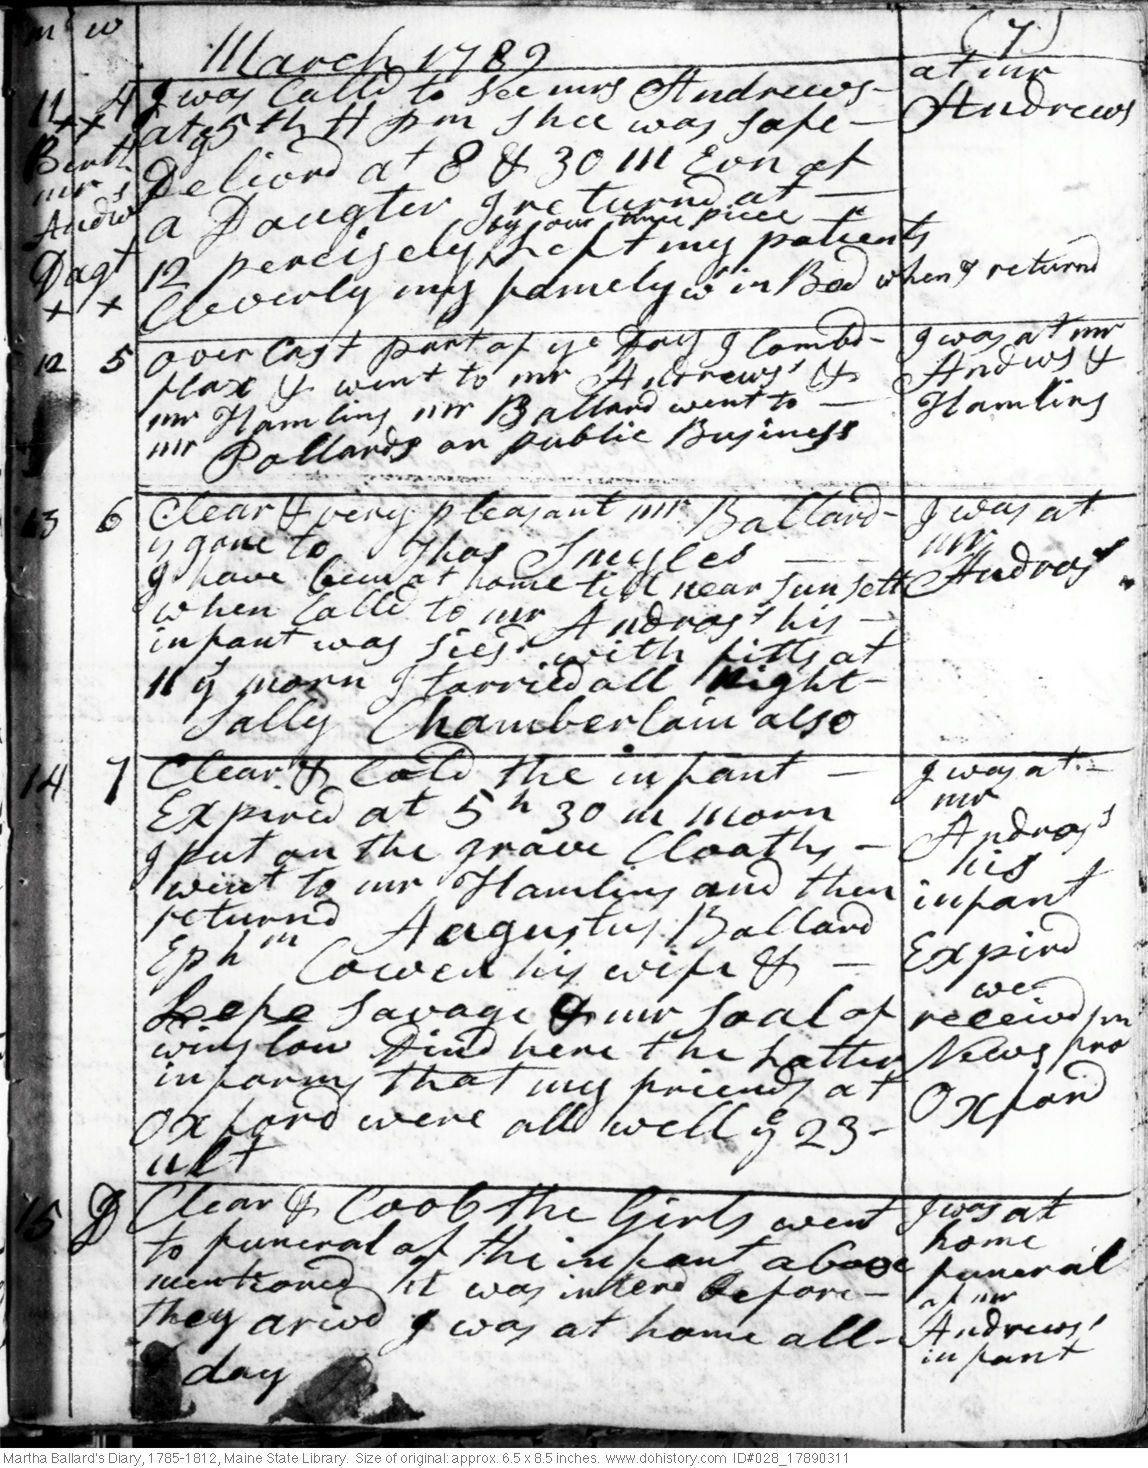 m w
March 1789
(7)
11 4
x x
Birth
mr
Andws
Dagt
x x
I was Calld to See mrs Andrews
at 5th H pm shee was safe
Deliord at 8 & 30 m Evn of
a Daugter I returnd at
by our time piece
12 percisely, Left my patients
Cleverly my famely wr in Bed when I returnd
at mr
Andrews
12 5
over Cast part of ye Day I Combd
flax & went to mr Andrews' &
mr Hamlins mr Ballard went to
mr Pollards on public Business
I was at mr
Andws &
Hamlins
13 6
Clear & very pleasant mr Ballard
is gone to Thos Smyles
I have been at home till near sun sett
when Calld to mr Andros's his
infant was siesd with fitts at
11 y morn I tarried all Night
Sally Chamberlain also
I was at
mr
Andros's
14 7
Clear & Cold the infant
Expired at 5 h 30 m morn
I put on the grave Cloaths
went to mr Hamlins and then
returnd Augustus Ballard
Ephm Cowen his wife &
Savage & mr Soal of
winslow Dind here the Latter
informs that my friends at
Oxford were all well ye 23
ult
I was at
mr
Andros's
his
infant
Expird
we
receivd
News fro
Oxford
15 D
Clear & Cool the Girls went
to funeral of the infant above
mentioned it was interd before
they arivd I was at home all
day
I was at
home
funeral
of mr
Andrews'
infant
Martha Ballard's Diary, 1785-1812, Maine State Library. Size of original: approx. 6.5 x 8.5 inches. www.dohistory.com ID#028_17890311